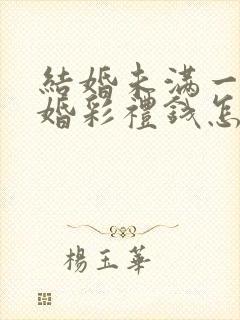 結婚未滿一
婚彩禮錢怎
楊玉華